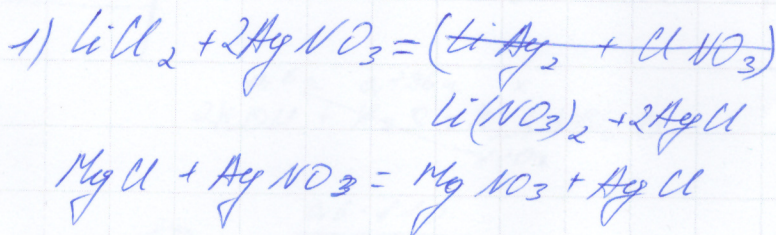 1) LiCl₂ + 2AgNO₃ = (LiAg₂ + ClNO₃)
Li(NO₃)₂ + 2AgCl
MgCl + AgNO₃ = MgNO₃ + AgCl